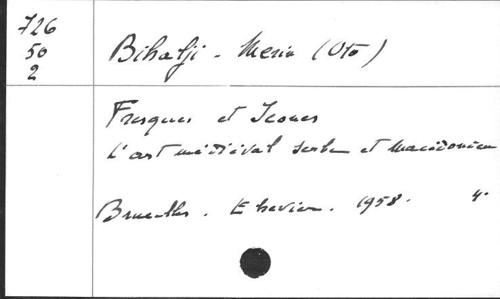 726
50
2
Bihalji - Merin (Oto)
Fresques et Icones
L'art médiéval serbe et macédonien
Bruxelles. Elsevier. 1958. 4°